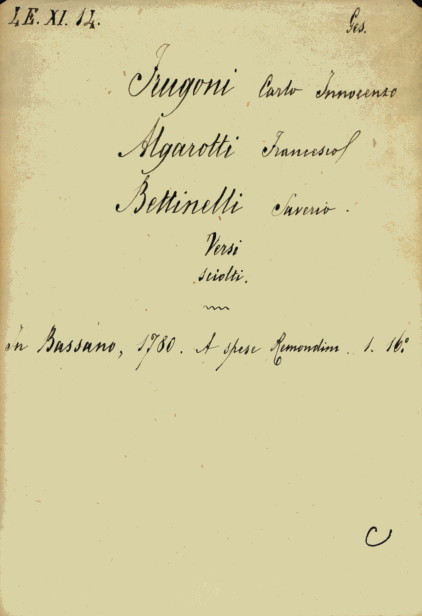 I.E. XI. 14.
Ges.
Frugoni Carlo Innocenzo
Algarotti Francesco
Bettinelli Saverio.
Versi
sciolti.
In Bassano, 1780. A spese Remondini. 1. 16.°
C